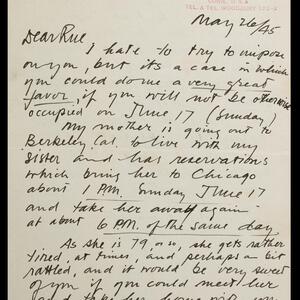 CONN. U.S.A.
TEL. & TEL. WOODBURY 122-2
May 26/45
Dear Rue
I hate to try to impose
on you, but it's a case in which
you could do me a very great
favor, if you will not be otherwise
occupied on June 17 (Sunday)
My mother is going out to
Berkeley Cal. to live with my
sister and has reservations
which bring her to Chicago
about 1 PM. Sunday June 17
and take her away again
at about 6 PM. of the same day.
As she is 79, she gets rather
tired, at times, and perhaps a bit
rattled, and it would be very sweet
of you if you could meet her
and take her home with you